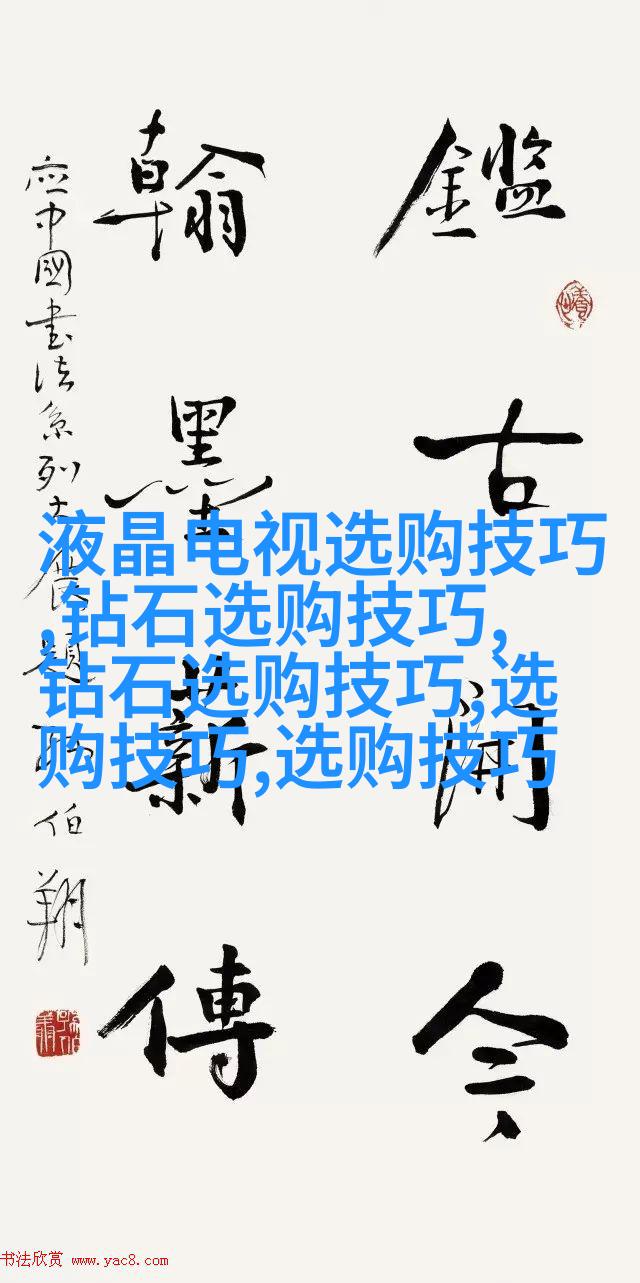 鑑古開今
翰墨薪傳
应中國書法系列大展題 伯翔
液晶电视选购技巧
,钻石选购技巧,
钻石选购技巧,选
购技巧,选购技巧
书法欣赏 www.yac8.com